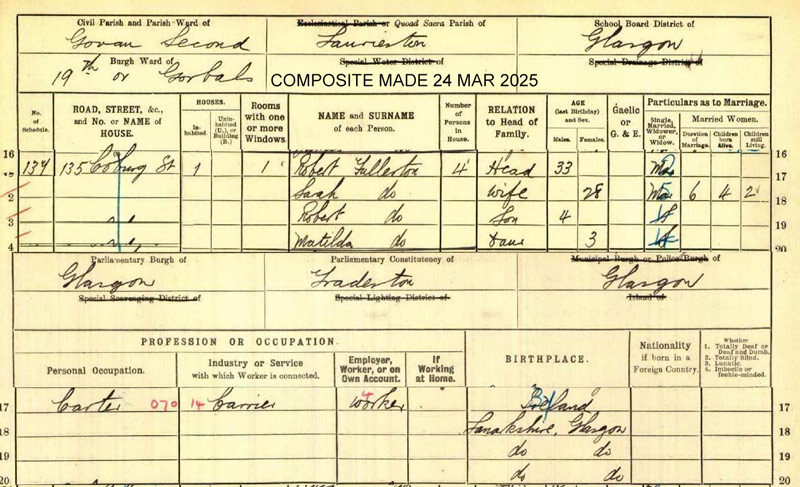 Civil Parish and Parish Ward of Ecclesiastical Parish or Quoad Sacra Parish of School Board District of
Govan Second Laurieston Glasgow
Burgh Ward of Special Water District of Special Drainage District of
19th or Gorbals
COMPOSITE MADE 24 MAR 2025
No. of Schedule. ROAD, STREET, &c., and No. or NAME of HOUSE. HOUSES. In-habited. Unin-habited (U.), or Building (B.) Rooms with one or more Windows. NAME and SURNAME of each Person. Number of Persons in House. RELATION to Head of Family. AGE (last Birthday) and Sex. Males. Females. Gaelic or G. & E. Particulars as to Marriage. Single, Married, Widower, or Widow. Married Women. Duration of Marriage. Children born Alive. Children still Living.
16 16
17 134 135 Coburg St 1 1 Robert Fullerton 4 Head 33 Mar 17
2 Sarah do Wife 28 Mar 6 4 2 18
3 Robert do Son 4 19
4 Matilda do Daur 3 20
Parliamentary Burgh of Parliamentary Constituency of Municipal Burgh or Police Burgh of
Glasgow Tradeston Glasgow
Special Scavenging District of Special Lighting District of Island of
PROFESSION OR OCCUPATION. BIRTHPLACE. Nationality if born in a Foreign Country. Whether 1. Totally Deaf or Deaf and Dumb. 2. Totally Blind. 3. Lunatic. 4. Imbecile or feeble-minded.
Personal Occupation. Industry or Service with which Worker is connected. Employer, Worker, or on Own Account. If Working at Home.
17 Carter 070 14 Carrier Worker Ireland 17
18 Lanarkshire, Glasgow 18
19 do do 19
20 do do 20